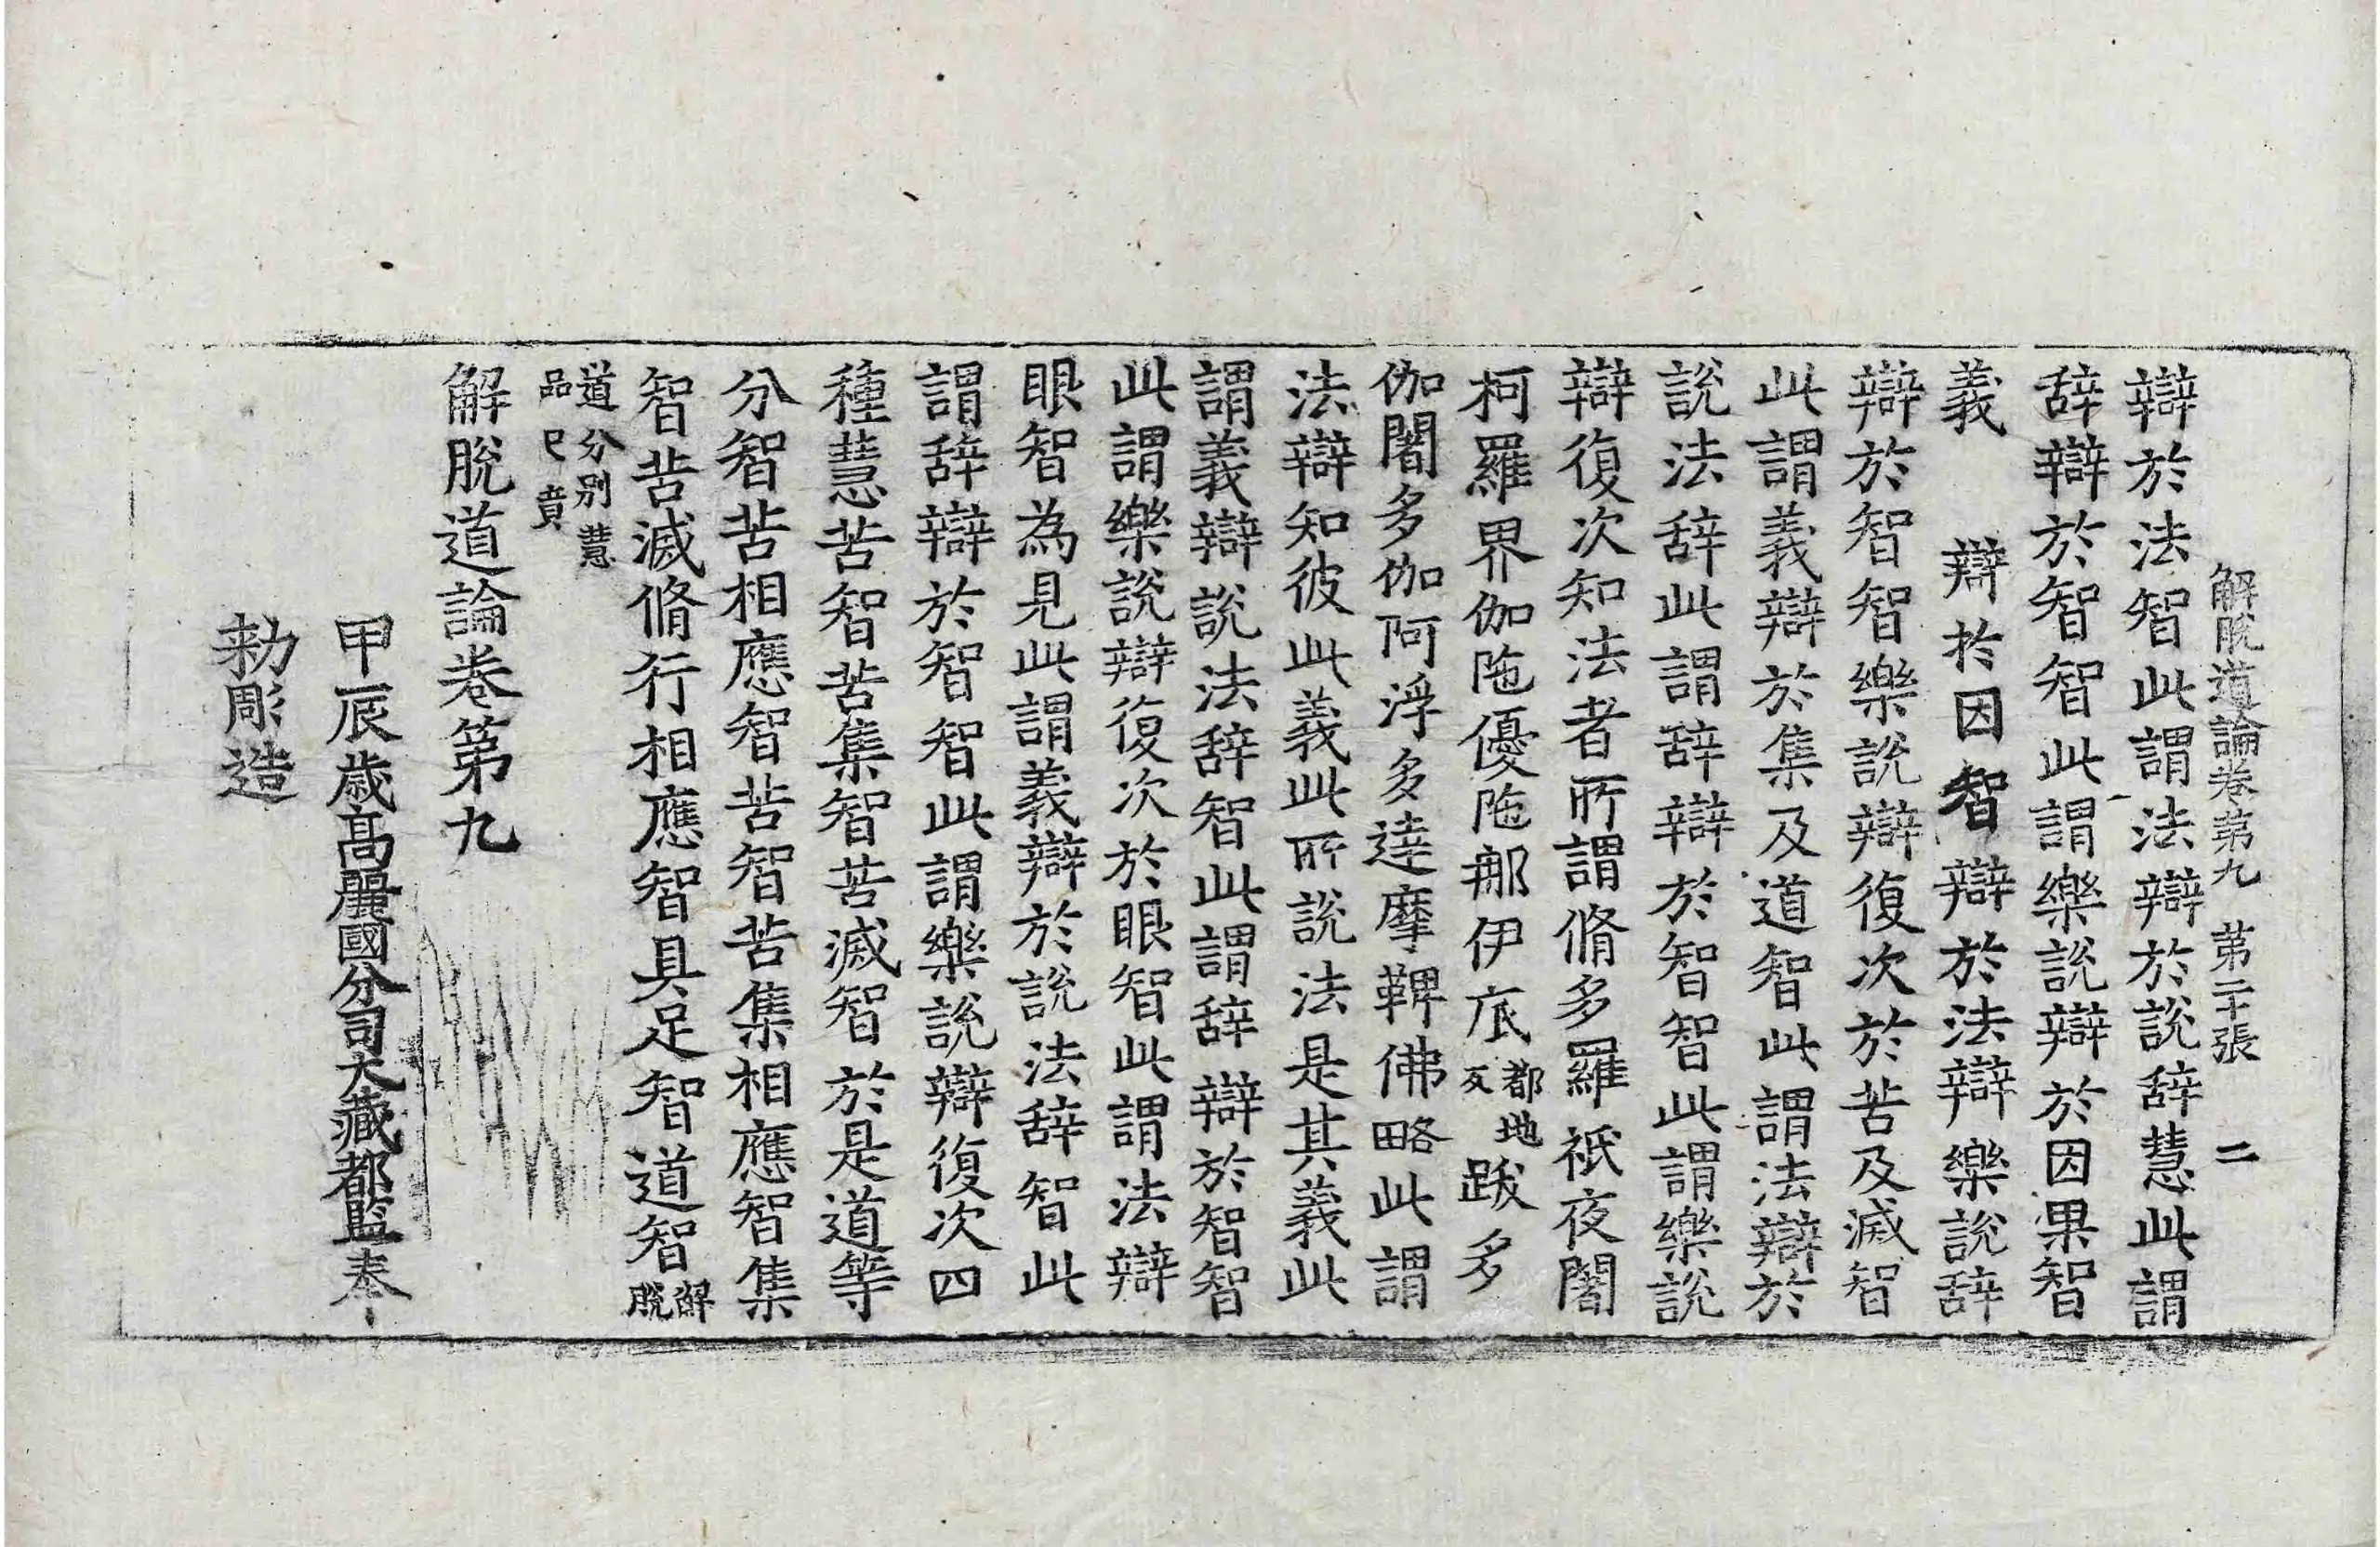 解脫道論卷第九　第二十張　二
辯於法智此謂法辯於說辭慧此謂
辭辯於智智此謂樂說辯於因果智
義　辯於因智辯於法辯樂說辭
辯於智智樂說辯復次於苦及滅智
此謂義辯於集及道智此謂法辯於
說法辭此謂辭辯於智智此謂樂說
辯復次知法者所謂脩多羅祇夜闍
柯羅界伽陁優陁那伊底都地反跋多
伽闍多伽阿浮多達摩鞞佛略此謂
法辯知彼此義此所說法是其義此
謂義辯說法辭智此謂辭辯於智智
此謂樂說辯復次於眼智此謂法辯
眼智為見此謂義辯於說法辭智此
謂辭辯於智智此謂樂說辯復次四
種慧苦智苦集智苦滅智於是道等
分智苦相應智苦智苦集相應智集
智苦滅脩行相應智具足智道智解脫
道分別慧品已賁
解脫道論卷第九
甲辰歲高麗國分司大藏都監奉
勅彫造